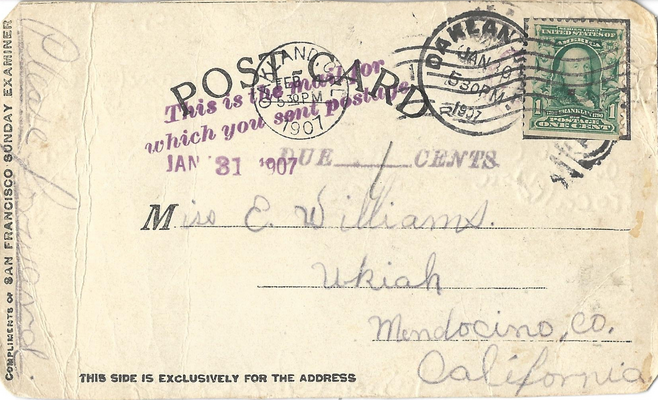 COMPLIMENTS OF SAN FRANCISCO SUNDAY EXAMINER
Please forward
POST CARD
OAKLAND
FEB 4
530PM
1907
OAKLAN
JAN 19
530PM
1907
UNITED STATES OF
AMERICA
FRANKLIN
POSTAGE
1 ONE CENT 1
This is the mail for
which you sent postage
JAN 31 1907
DUE 1 CENTS
Miss E. Williams.
Ukiah
Mendocino, Co.
California
THIS SIDE IS EXCLUSIVELY FOR THE ADDRESS